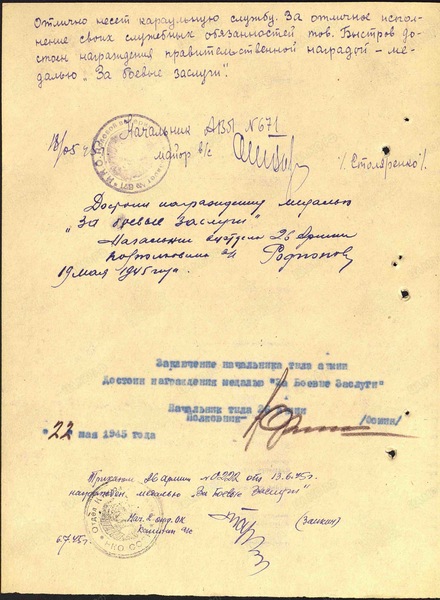 Отлично несет караульную службу. За отличное испол-
нение своих служебных обязанностей тов. Быстров до-
стоин награждения правительственной наградой – ме-
далью „За боевые заслуги".
Начальник АВЫ №671
18/05 45
майор в/с /Столяренко/
Достоин награждения медалью
„За боевые заслуги"
26 Армии
Родионов
19 мая 1945 года.
Заключение начальника тыла армии
Достоин награждения медалью "За Боевые Заслуги"
Начальник тыла 26 армии
Полковник- /Фомин/
"22 мая 1945 года
Приказом 26 армии №0222 от 13.6.45г.
награжден медалью „За Боевые Заслуги"
Нач. 2 отд. ОК
Капитан а/с (Заикин)
6.7.45г.